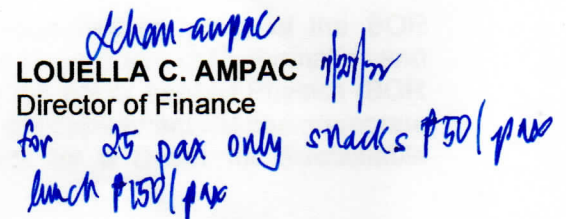 LOUELLA C. AMPAC 7/27/22
Director of Finance
for 25 pax only snacks ₱50/pax
lunch ₱150/pax